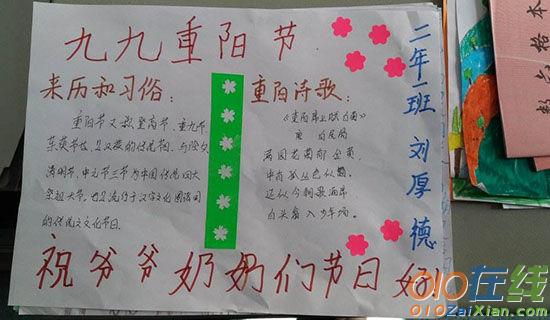 九九重阳节
来历和习俗：
重阳节又叫登高节，重九节，
茱萸节也是汉族的传统节日，与除夕
清明节，中元节三节为中国传统四大
祭祖大节，也是流行于汉字文化圈诸国
的传统文化节日。
重阳诗歌：
满园花菊郁金黄，
中有孤丛色似霜
还似今朝歌酒席
白头翁入少年场。
二年一班 刘厚德
祝爷爷奶奶们节日好
数学格本
010在线
010ZaiXian.com